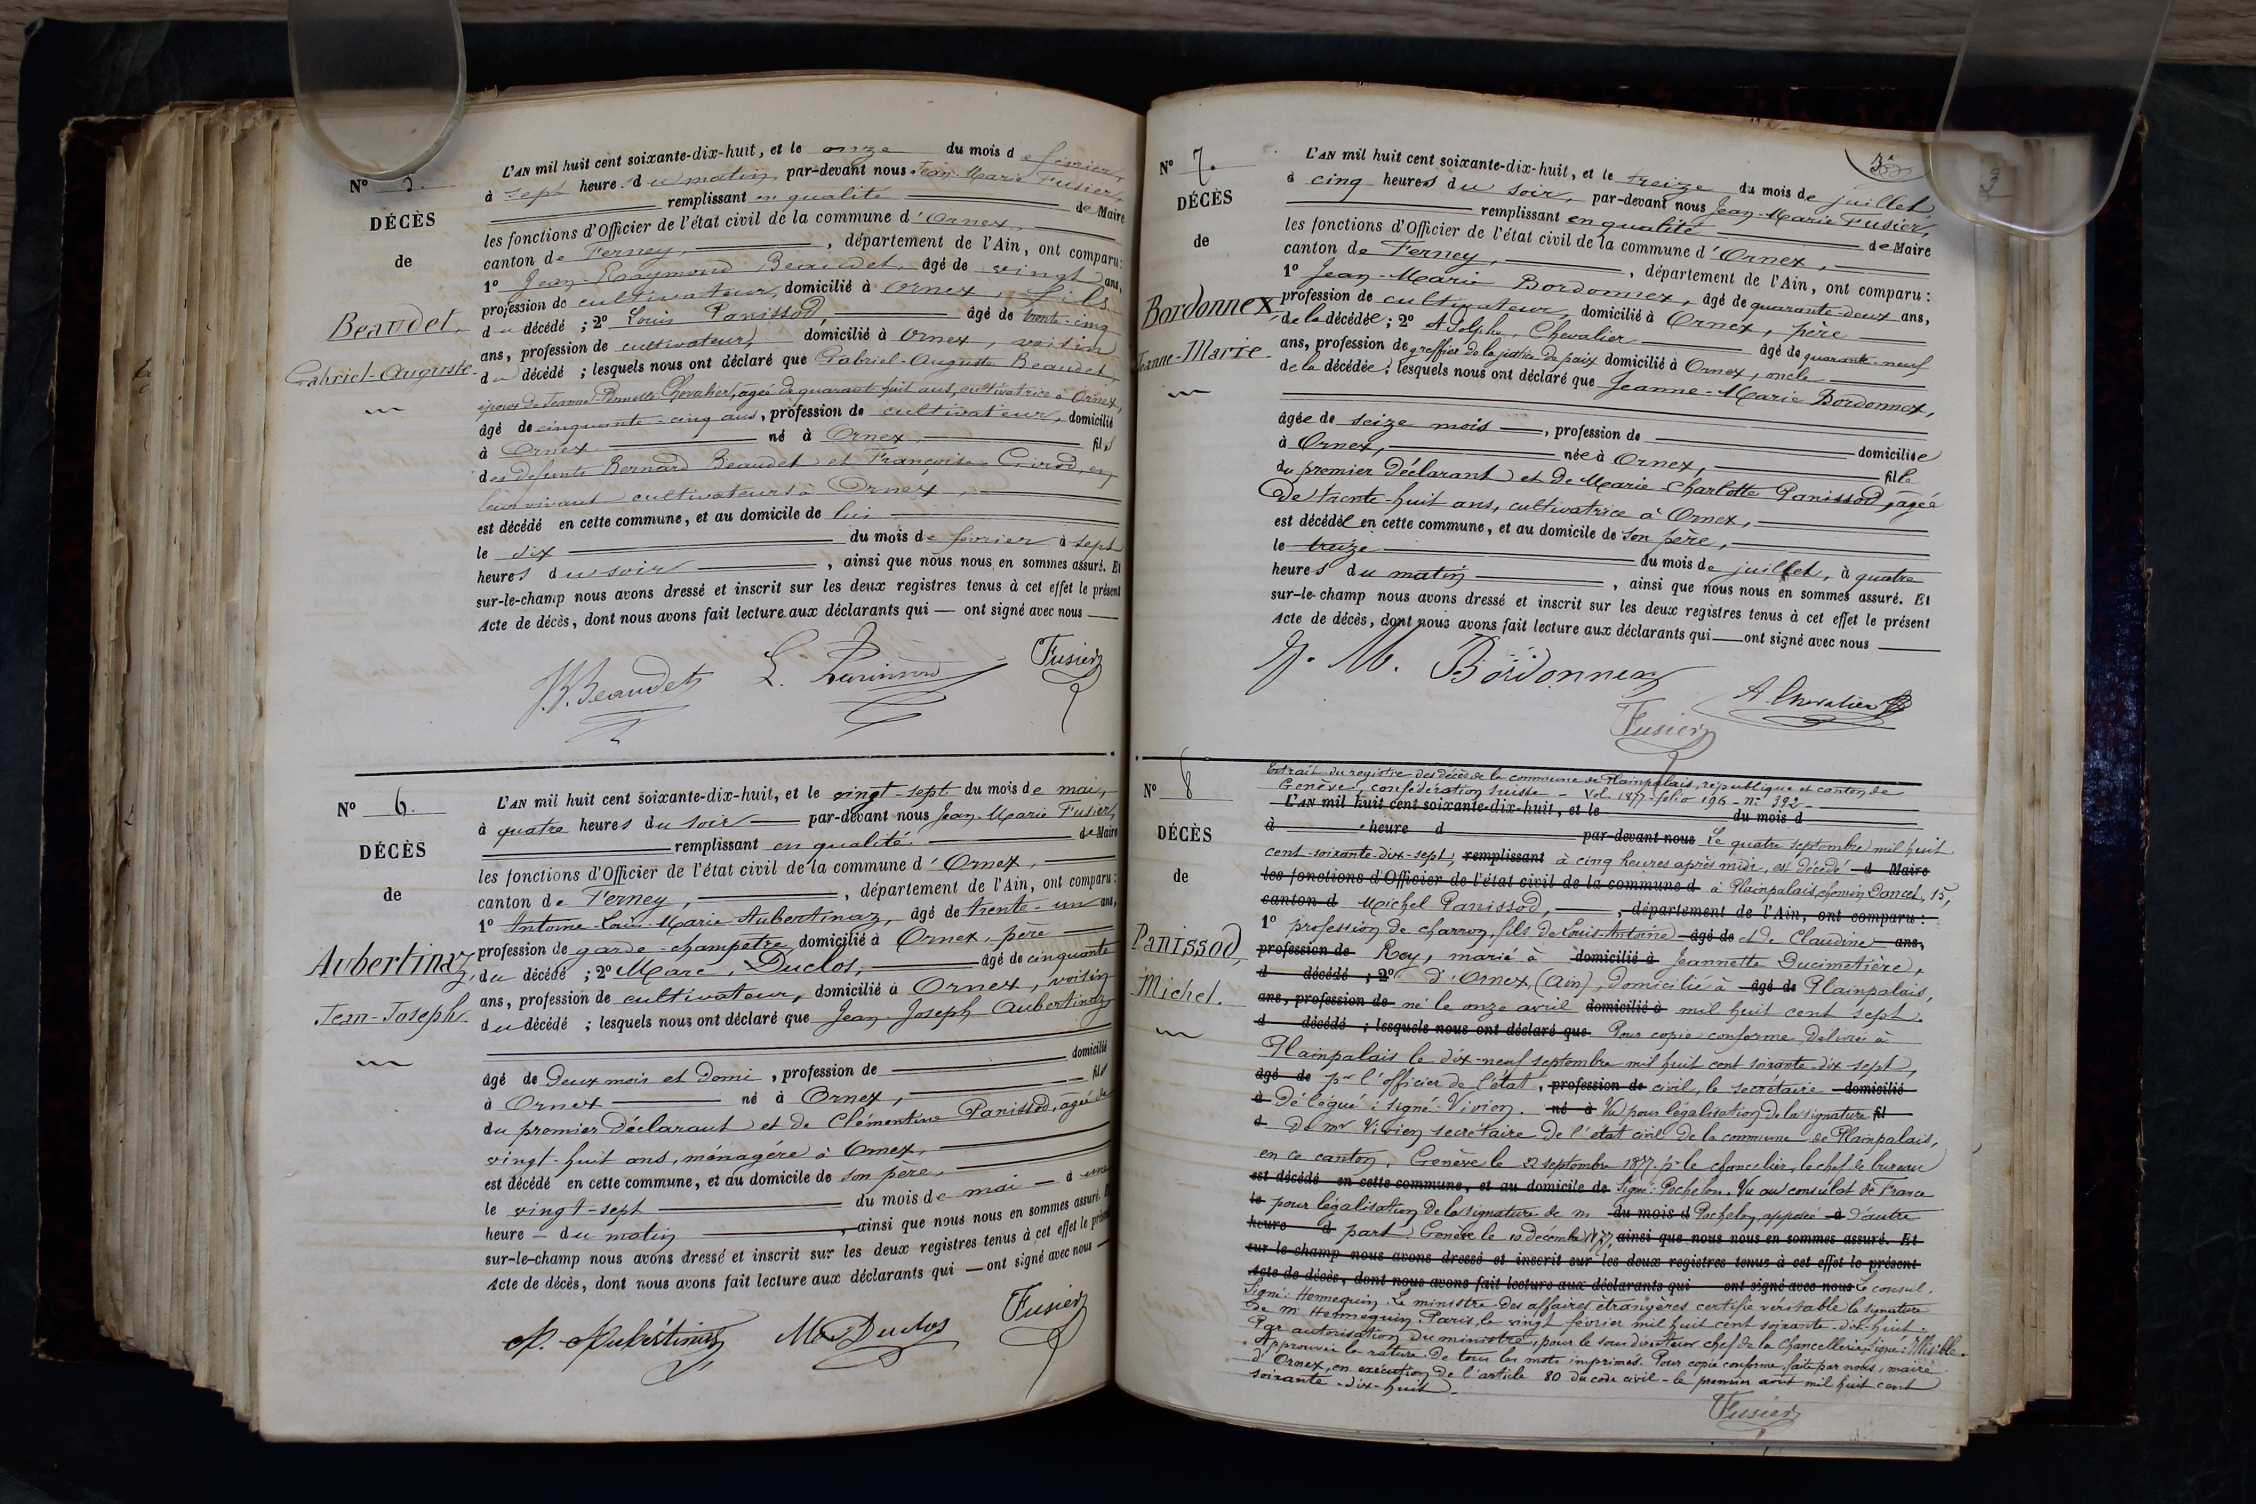 N° 5.
DÉCÈS
de
Beaudet
Gabriel-Auguste
L'AN mil huit cent soixante-dix-huit, et le onze du mois de février,
à sept heures du matin, par-devant nous Jean Marie Fusier,
remplissant en qualité de Maire
les fonctions d'Officier de l'état civil de la commune d'Ornex,
canton de Ferney, , département de l'Ain, ont comparu:
1° Jean-Raymond Beaudet, âgé de vingt ans,
profession de cultivateur, domicilié à Ornex, fils
du décédé ; 2° Louis Panissod, âgé de trente-cinq
ans, profession de cultivateur, domicilié à Ornex, voisin
du décédé ; lesquels nous ont déclaré que Gabriel-Auguste Beaudet,
époux de Jeanne-Pernette Chevalier, agée de quarante huit ans, cultivatrice à Ornex,
âgé de cinquante-cinq ans, profession de cultivateur, domicilié
à Ornex né à Ornex, fils
des defunts Bernard Beaudet et Françoise Girod, en
leur vivant cultivateurs à Ornex,
est décédé en cette commune, et au domicile de lui
le dix du mois de février à sept
heures du soir , ainsi que nous nous en sommes assuré. Et
sur-le-champ nous avons dressé et inscrit sur les deux registres tenus à cet effet le présent
Acte de décès, dont nous avons fait lecture aux déclarants qui — ont signé avec nous —
J.R. Beaudet L. Panissod Fusier
N° 6.
DÉCÈS
de
Aubertinaz,
Jean-Joseph
L'AN mil huit cent soixante-dix-huit, et le vingt-sept du mois de mai,
à quatre heures du soir par-devant nous Jean-Marie Fusier,
remplissant en qualité de Maire
les fonctions d'Officier de l'état civil de la commune d'Ornex,
canton de Ferney, , département de l'Ain, ont comparu:
1° Antoine-Louis-Marie Aubertinaz, âgé de trente-un ans,
profession de garde-champetre, domicilié à Ornex, père
du décédé ; 2° Marc Duclos, âgé de cinquante
ans, profession de cultivateur, domicilié à Ornex, voisin
du décédé ; lesquels nous ont déclaré que Jean-Joseph Aubertinaz
âgé de Deux mois et demi, profession de domicilié
à Ornex né à Ornex, fils
du premier Déclarant et de Clémentine Panissod, agée de
vingt-huit ans, ménagère à Ornex,
est décédé en cette commune, et au domicile de son père,
le vingt-sept du mois de mai — à une
heure — du matin , ainsi que nous nous en sommes assuré. Et
sur-le-champ nous avons dressé et inscrit sur les deux registres tenus à cet effet le présent
Acte de décès, dont nous avons fait lecture aux déclarants qui — ont signé avec nous —
A. Aubertinaz Mc Duclos Fusier
N° 7.
DÉCÈS
de
Bordonnex,
Jeanne-Marie.
L'AN mil huit cent soixante-dix-huit, et le treize du mois de juillet
à cinq heures du soir, par-devant nous Jean-Marie Fusier,
remplissant en qualité de Maire
les fonctions d'Officier de l'état civil de la commune d'Ornex,
canton de Ferney, , département de l'Ain, ont comparu :
1° Jean-Marie Bordonnex, âgé de quarante-deux ans,
profession de cultivateur, domicilié à Ornex, père
de la décédée ; 2° Adolphe Chevalier âgé de quarante-neuf
ans, profession de greffier de la justice de paix domicilié à Ornex, oncle
de la décédée ; lesquels nous ont déclaré que Jeanne-Marie Bordonnex,
âgée de seize mois , profession de
à Ornex, née à Ornex, domiciliée
du premier Déclarant et de Marie-Charlotte Panissod, agée fille
de trente-huit ans, cultivatrice à Ornex,
est décédée en cette commune, et au domicile de son père,
le treize du mois de juillet, à quatre
heures du matin , ainsi que nous nous en sommes assuré. Et
sur-le-champ nous avons dressé et inscrit sur les deux registres tenus à cet effet le présent
Acte de décès, dont nous avons fait lecture aux déclarants qui — ont signé avec nous
J. M. Bordonnex
A. Chevalier
Fusier
N° 8
DÉCÈS
de
Panissod,
Michel.
Extrait du registre des décès de la commune de Plainpalais, république et canton de
Genève, confédération suisse - Vol. 1877 - folio 196 - N° 392 -
L'AN mil huit cent soixante-dix-huit, et le du mois d
à heure d par-devant nous Le quatre septembre mil huit
cent-soixante-dix-sept, remplissant à cinq heures après midi, est décédé d Maire
les fonctions d'Officier de l'état civil de la commune d à Plainpalais, chemin Dancet, 15,
canton d Michel Panissod, , département de l'Ain, ont comparu :
1° profession de charron, fils de Louis-Antoine âgé de et de Claudine ans,
profession de Roy, marié à domicilié à Jeannette Ducimetière,
d décédé ; 2° d'Ornex, (Ain), domicilié à âgé de Plainpalais,
ans, profession de né le onze avril domicilié à mil huit cent sept.
d décédé ; lesquels nous ont déclaré que Pour copie conforme Délivrée à
Plainpalais le dix-neuf septembre mil huit cent soixante-dix-sept,
âgé de pr l'officier de l'état, profession de civil, le secrétaire domicilié
à Délégué : signé : Vivien. né à Vu pour légalisation de la signature fil
d De Mr Vivien secrétaire De l'état civil De la commune de Plainpalais,
en ce canton, Genève le 22 septembre 1877. pr le chancelier, le chef de bureau
est décédé en cette commune, et au domicile de Signé : Pochelon. Vu au consulat de France
le pour légalisation de la signature de m du mois d Pochelon, apposée à d'autre
heure d part Genève le 10 décembre 1877, ainsi que nous nous en sommes assuré. Et
sur-le-champ nous avons dressé et inscrit sur les deux registres tenus à cet effet le présent
Acte de décès, dont nous avons fait lecture aux déclarants qui ont signé avec nous Le consul.
Signé : Hennequin. Le ministre Des affaires étrangères certifie véritable la signature
De Mr Hennequin. Paris, le vingt février mil huit cent soixante-dix-huit.
Par autorisation Du ministre, pour le sous directeur chef de la chancellerie, signé : Illisible.
Approuvée la rature De tous les mots imprimés. Pour copie conforme, faite par nous, maire
d'Ornex, en exécution de l'article 80 Du code civil - le premier aout mil huit cent
soixante-dix-huit.
Fusier